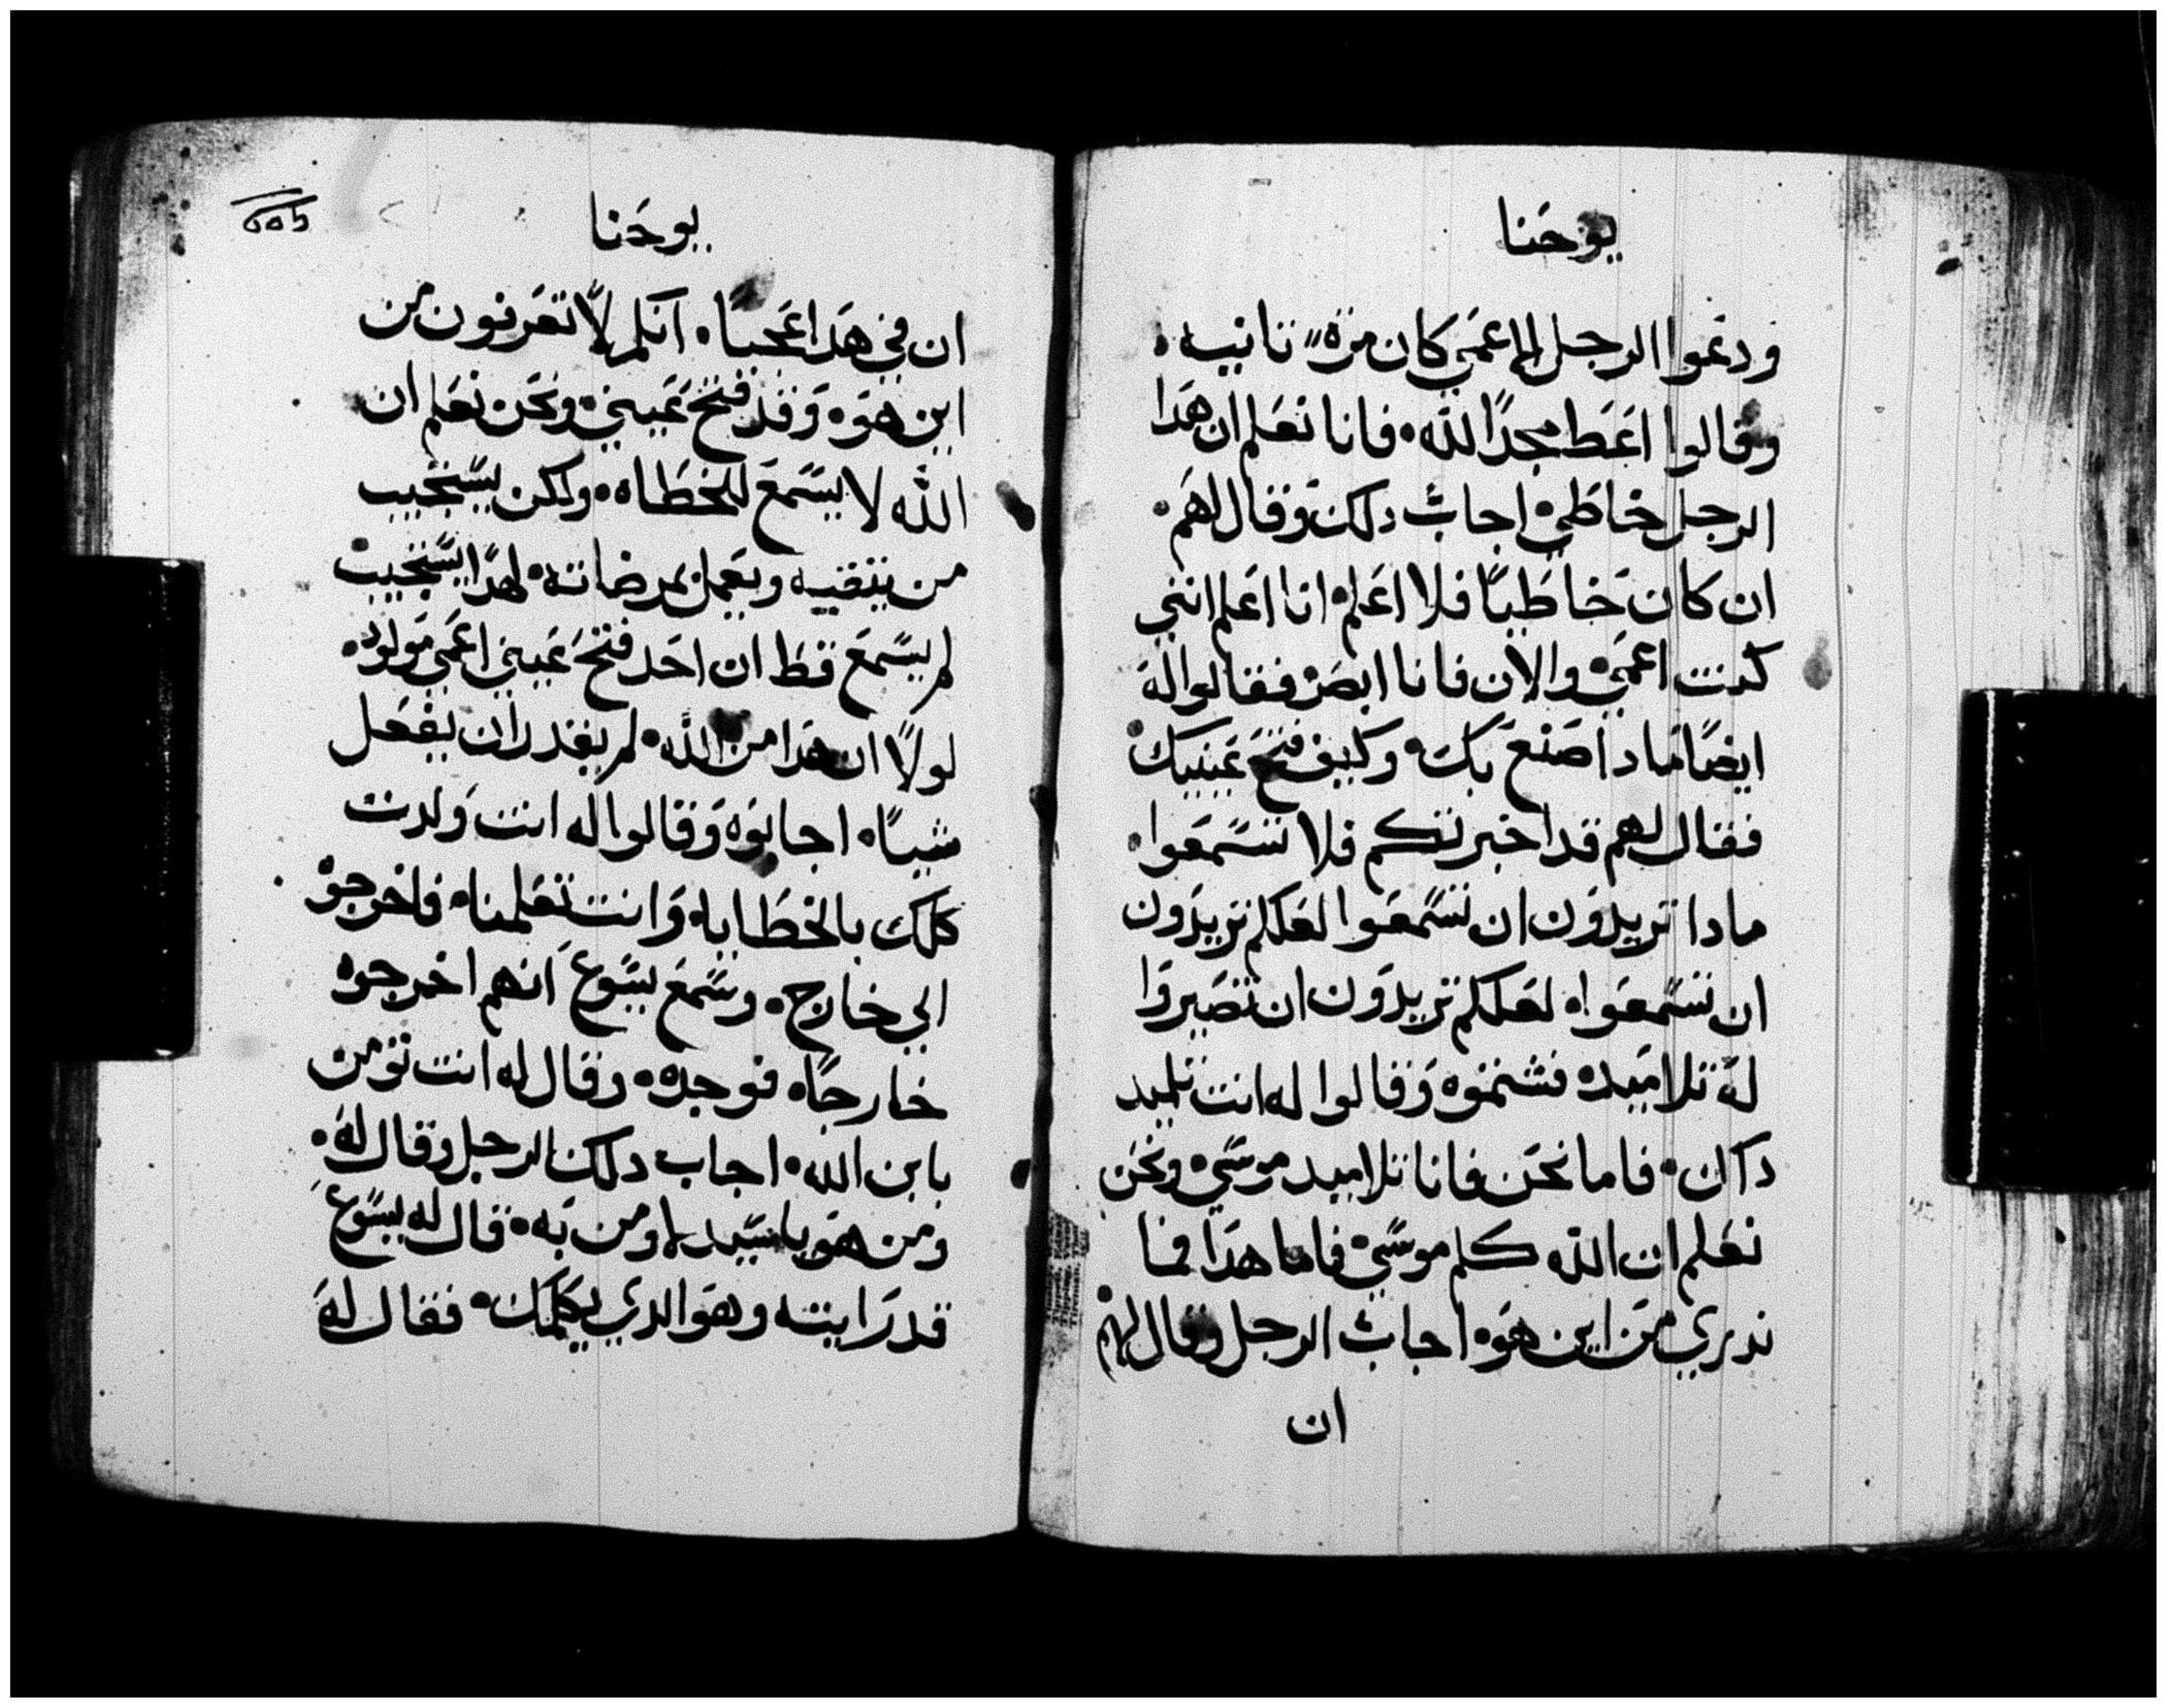 يوحَنا
ودعوا الرجل الاعمَي كان مرَة ثانيه
وقالوا اعَط مجدًا لله فانا نعَلم ان هَدا
الرجل خاطَي اجاب دلك وَقال لهَم
ان كان خَاطَيًا فلا اعَلم انا اعَلم انني
كنت اعمَي والان فانا ابصَر فقالوا لهَ
ايضًا مَا دا صَنع بَك وكيف فتحَ عَينيك
فقال لهم قد اخبرتكم فلا تسَمعَوا
ما دا تريدوَن ان تسَمعَوا لعَلكم تريدَون
ان تسَمعَوا لعَلكم تريدوَن ان تصَيروَا
لهَ تلاميَده فشتموَه وَقالوا له انت تلميد
داك فاما نحَن فانا تلاميد موسَي ونحَن
نعَلم ان الله كلم موسَي فاما هدَا فما
ندري مَن اين هوَ اجاب الرجل وقال لهم
ان
يوحَنا
ان في هَدا عَجبًا انكم لاَ تعَرفون من
اين هوَ وَقد فتح عَيني ونحَن نعَلم ان
الله لا يسَمعَ للخطَاه ولكن يسَتجيب
من يتقيه ويعَمل بمرضاته لهدَا يسَتجيب
لم يسَمعَ قط ان احَد فتحَ عَيني اعمَي مَولود
لولاَ ان هدَا من الله لم يقدر ان يفعَل
شيًا اجابوَه وَقالوا له انت وَلدت
كلك بالخطَايا وَانت تعَلمنا فاخرجوَه
الي خارج وسَمعَ يسَوعَ انهم اخرجوه
خارجًا فوجدَه وقال له انت تومن
بابن الله اجاب دلك الرجل وقال لهَ
ومن هوَ يا سَيد لاومن بَه قال له يسَوعَ
قد رَايته وهوَ الدي يكَلمك فقال لهَ